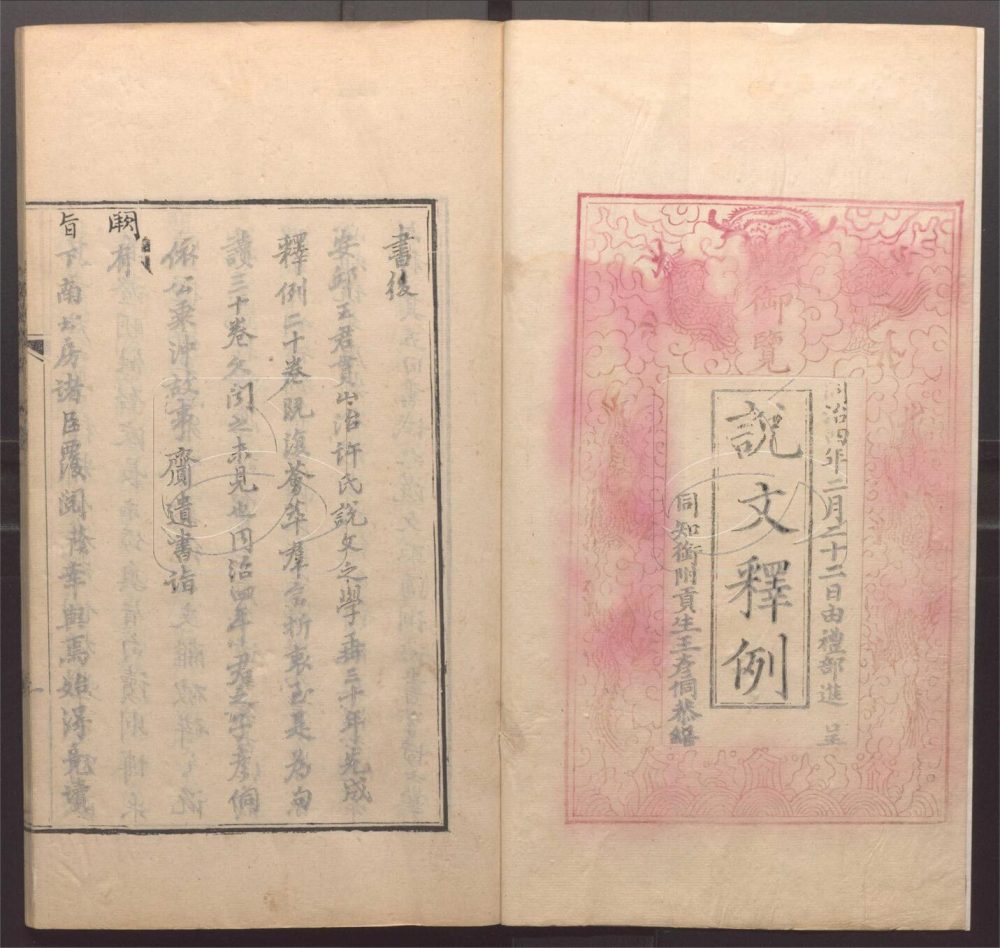 御覽
同治四年二月二十二日由禮部進 呈
說文釋例
同知銜附貢生王彥侗恭
書後
安邱王君貫山治許氏說文之學垂三十年先成
釋例二十卷既復薈萃羣言折衷至是為句
讀三十卷久聞之未見也同治四年君之子彥侗
依公乘沖故事 齎遺書詣
闕
旨下南書房諸臣覆閱蔭幸與焉始得竟讀